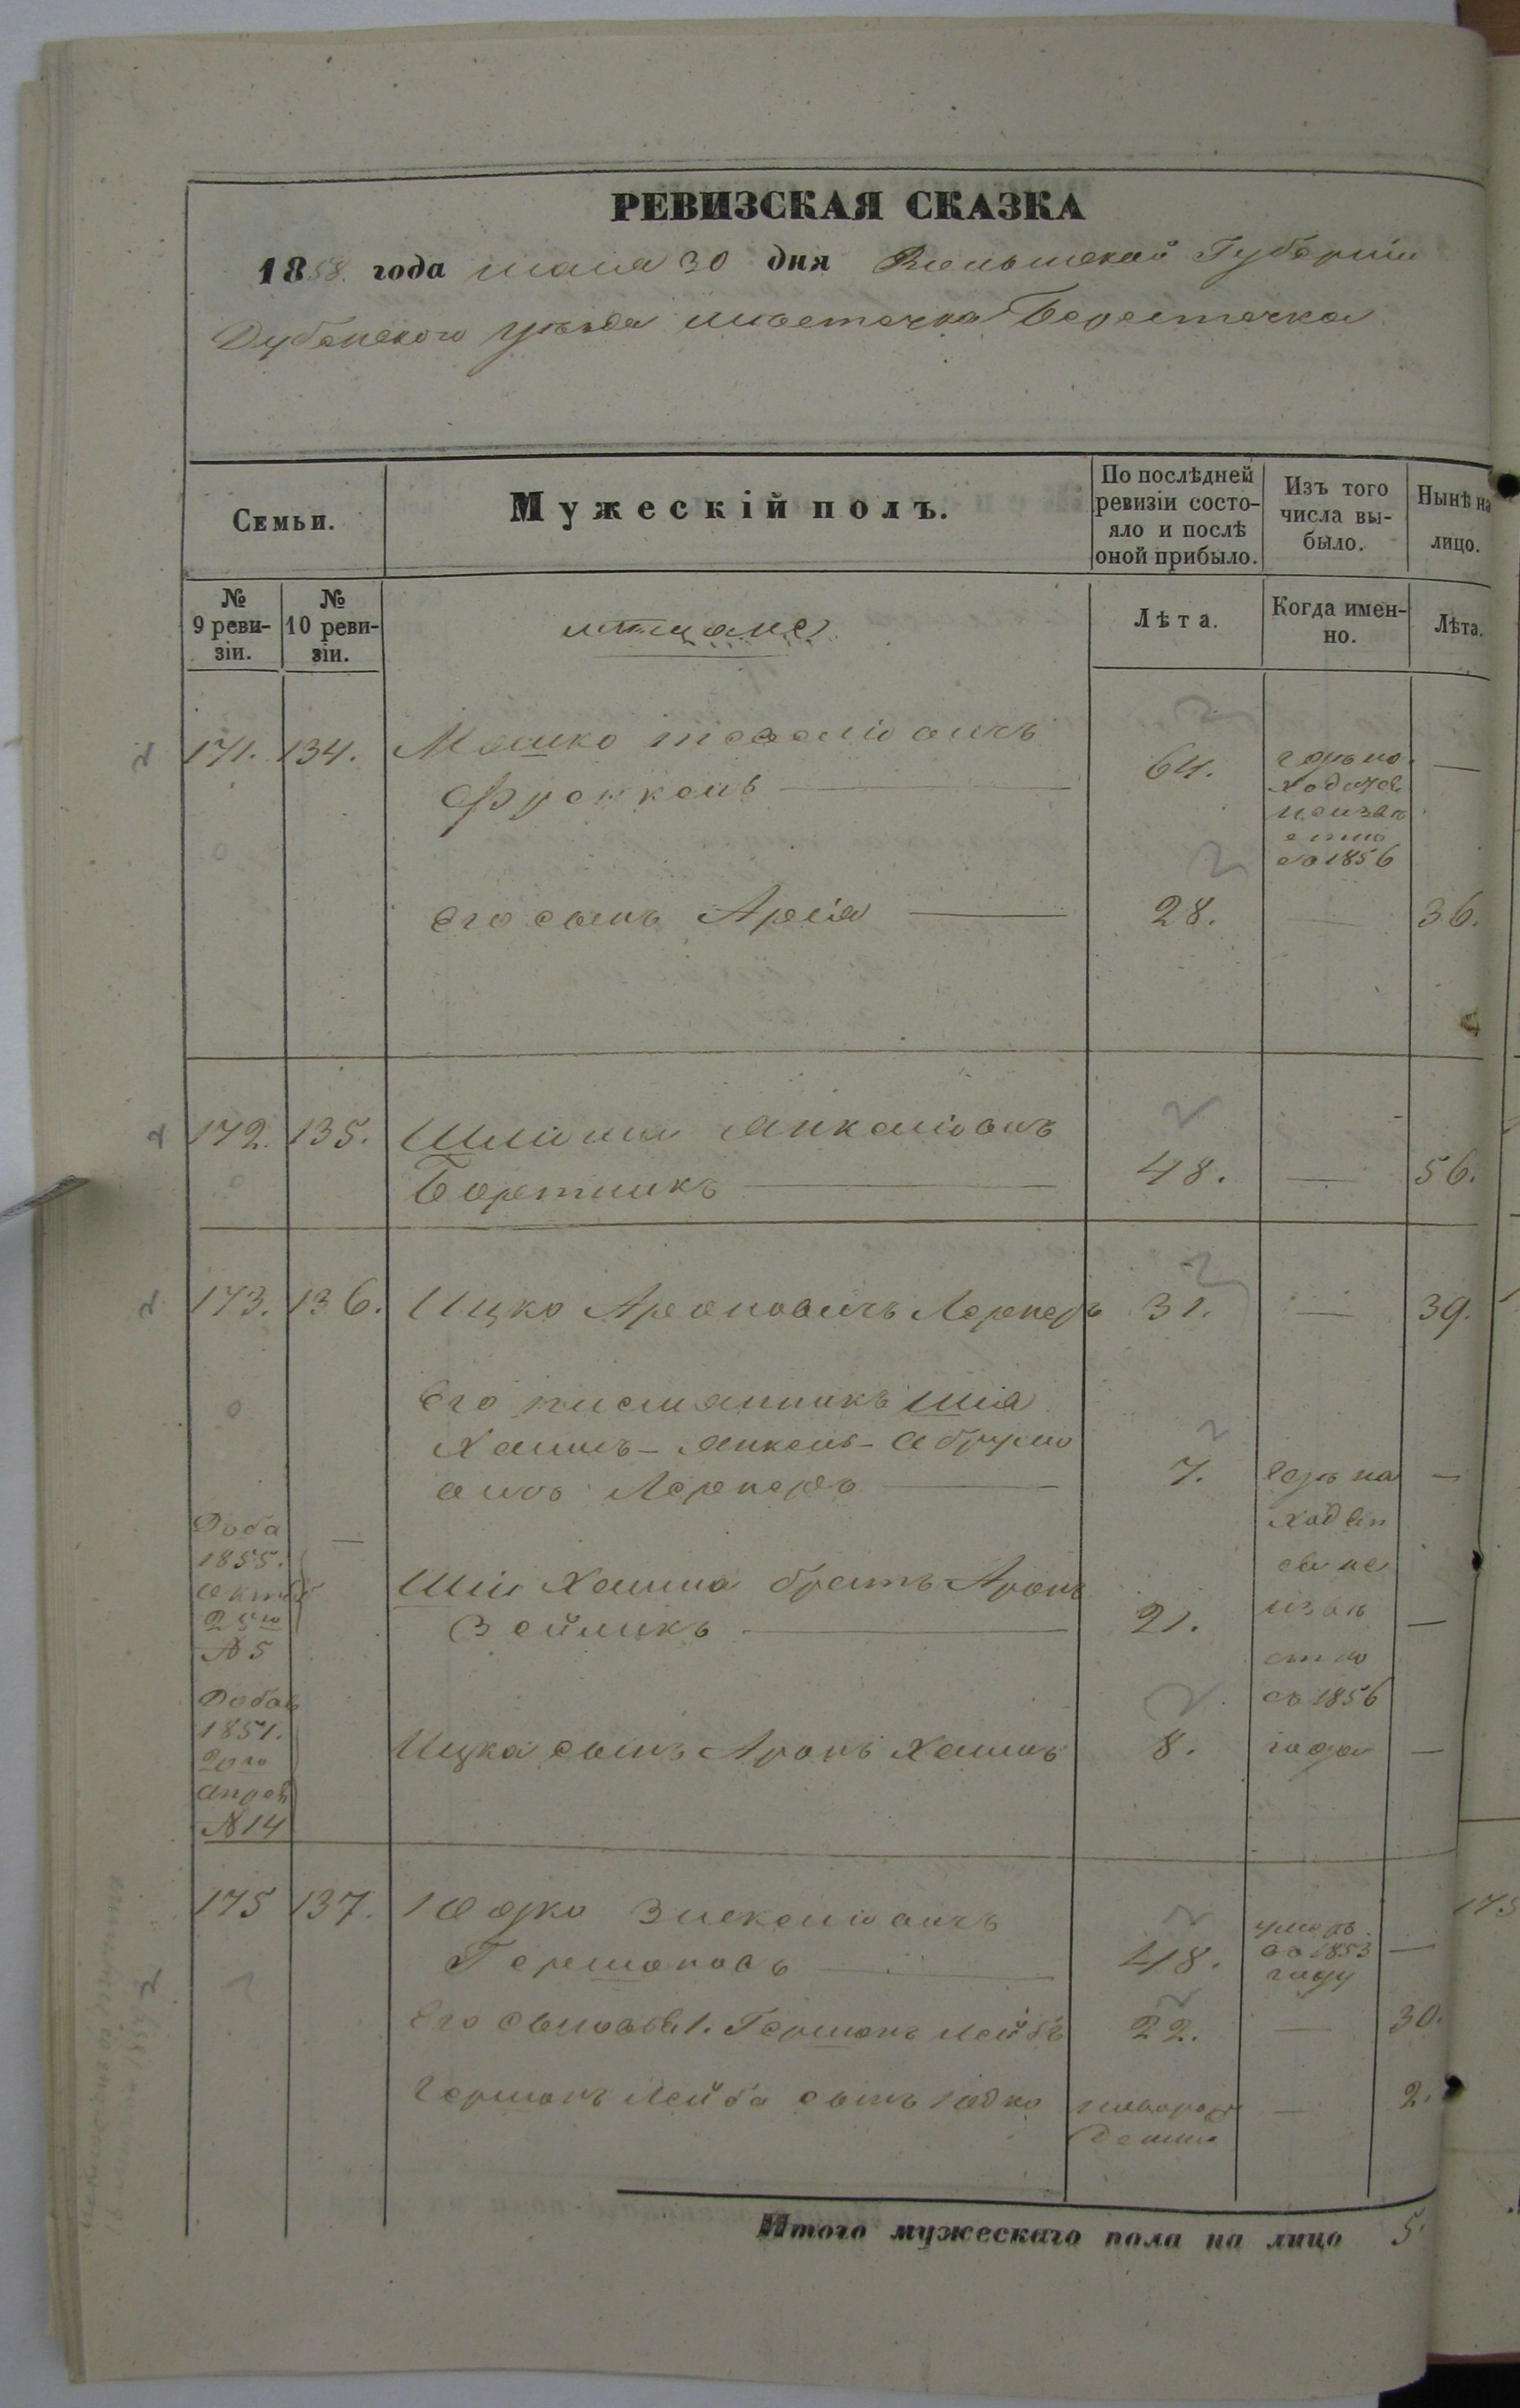 РЕВИЗСКАЯ СКАЗКА
1858. года маия 30 дня Волынской Губернии
Дубенского уѣзда мѣстечка Берестечка
Семьи.
Мужескій полъ.
По послѣдней ревизіи состо-
яло и послѣ
оной прибыло.
Изъ того
числа вы-
было.
Нынѣ на
лицо.
№
9 реви-
зіи.
№
10 реви-
зіи.
мѣщане
Лѣта.
Когда имен-
но.
Лѣта.
171. 134. Мошко
Френкель 64. —
съ 1856
Его сынъ Арія 28. — 36.
172. 135. Шліома Янкеліовичъ
48. — 56.
173. 136. Ицко Ароновичъ Лернеръ 31. — 39.
Его племянникъ Шія
Хаимъ-Янкель-Абрумо
вичъ Лернеръ 7. —
Доба
1855.
Октяб
25го
№ 5
—
Шіи Хаима братъ Аронъ
Зейликъ 21. —
съ 1856
года
Добав
1851.
20го
апрел
№ 14
Ицка сынъ Аронъ Хаимъ 8. —
175 137. Іодко
Гершоновъ 48. умеръ
въ 1853
году
—
Его сыновья 1. Гершонъ Лейбъ 22. — 30.
Гершонъ Лейба сынъ Іодко новорож
денный
— 2.
Итого мужескаго пола на лицо 5.